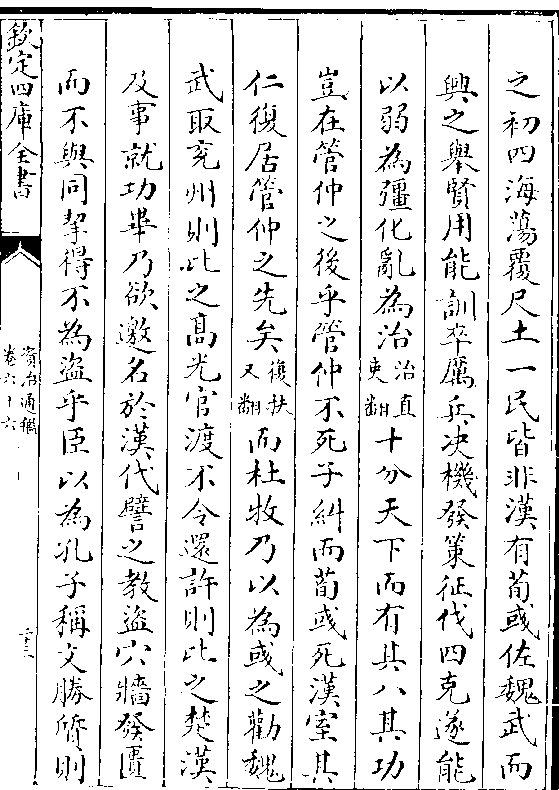 之初四海蕩覆尺土一民皆非漢有荀彧佐魏武而
興之舉賢用能訓卒厲兵決機發策征伐四克遂能
以弱為彊化亂為治治直吏翻十分天下而有其八其功
豈在管仲之後乎管仲不死子糾而荀彧死漢室其
仁復居管仲之先矣復扶又翻而杜牧乃以為彧之勸魏
武取兗州則比之髙光官渡不令還許則比之楚漢
及事就功畢乃欲邀名於漢代譬之教盜穴牆發匱
而不與同挈得不為盜乎臣以為孔子稱文勝質則
欽定四庫全書
資治通鑑
卷六十六